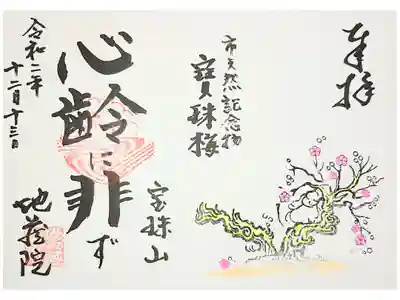 奉拝
市天然記念物
寳珠梅
宝珠山
心齢に非ず
地蔵院
令和二年
十二月十三日